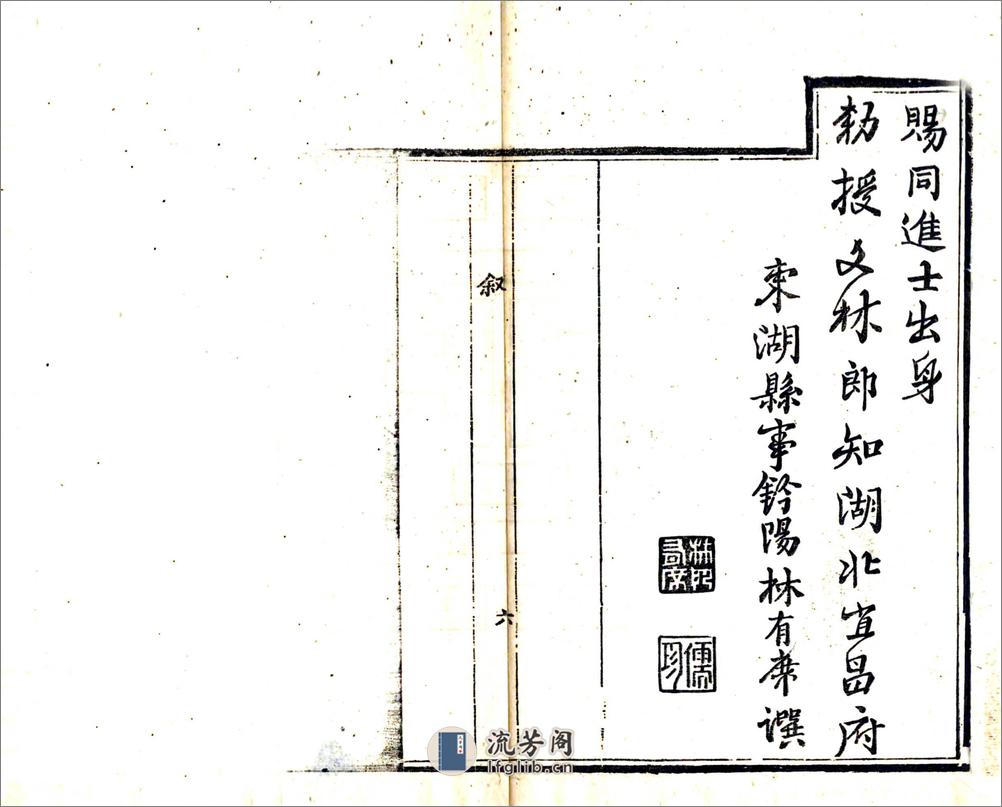 賜同進士出身
勅授文林郎知湖北宜昌府
東湖縣事鈐陽林有席譔
林有席
儒珍
叙
六
流芳阁
lfglib.cn